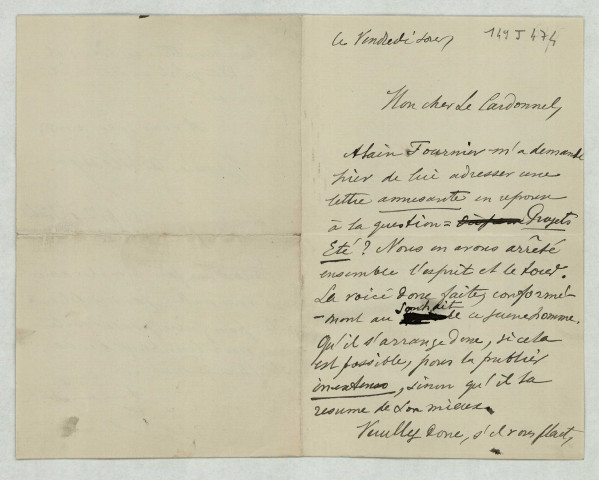 Ce Vendredi soir,
149 J 474
Mon cher Le Cardonnel,
Alain Fournier m'a demandé
hier de lui adresser une
lettre amusante en réponse
à la question = Projets
Eté ? Nous en avons arrêté
ensemble l'esprit et le tour.
La voici donc faite, conformé-
-ment au souhait de ce jeune homme.
Qu'il s'arrange donc, si cela
est possible, pour la publier
in extenso, sinon qu'il la
resume de son mieux.
Veuillez donc, s'il vous plait,